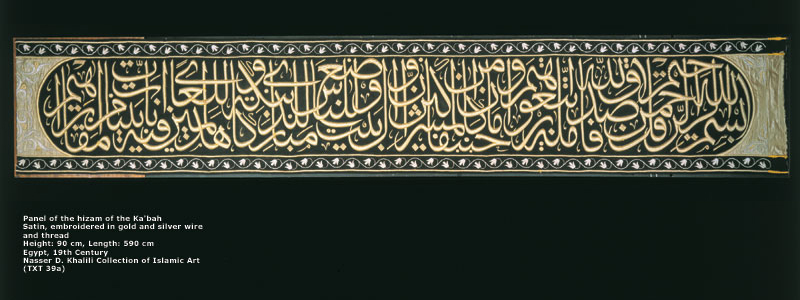 بسم الله الرحمن الرحيم قل صدق الله فاتبعوا ملة ابراهيم حنيفا وما كان من المشركين ان اول بيت وضع للناس للذى ببكة مباركا وهدى للعالمين فيه ايات بينات مقام ابراهيم
Panel of the hizam of the Ka'bah
Satin, embroidered in gold and silver wire
and thread
Height: 90 cm, Length: 590 cm
Egypt, 19th Century
Nasser D. Khalili Collection of Islamic Art
(TXT 39a)